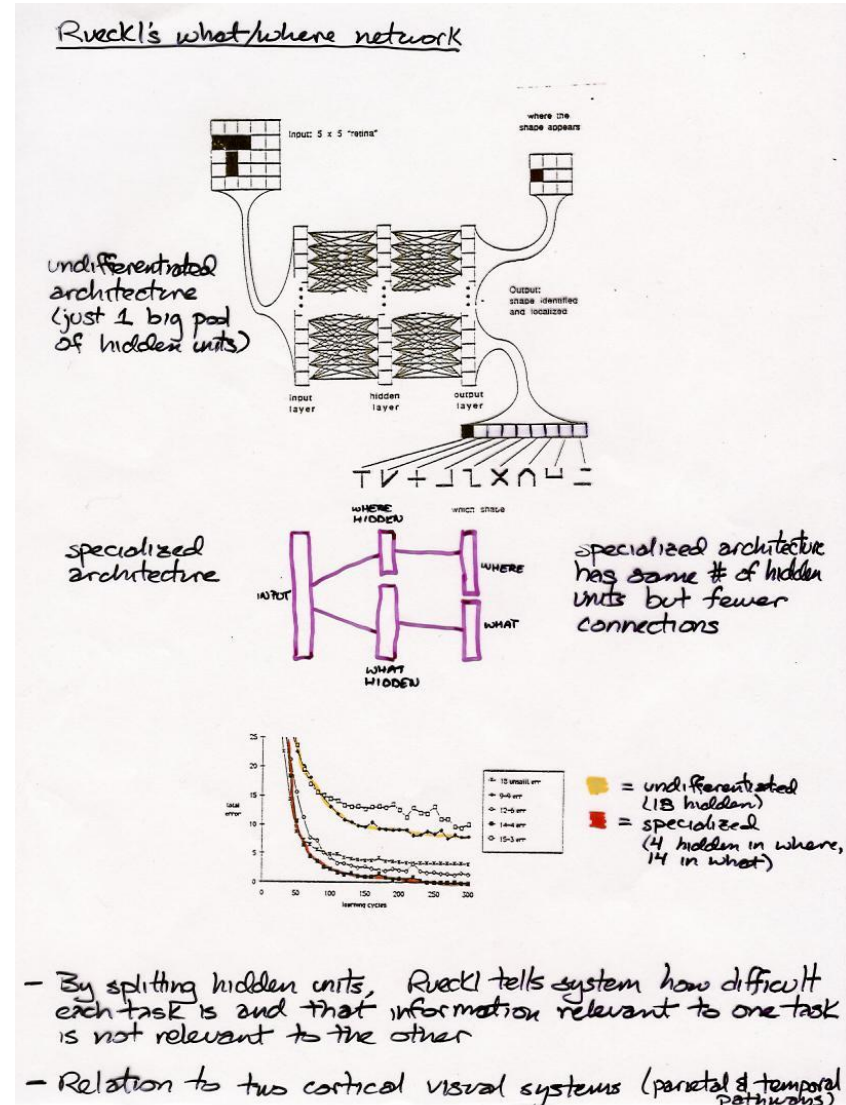 Rueckl's what/where network
Input: 5 x 5 "retina"
where the
shape appears
undifferentiated
architecture
(just 1 big pool
of hidden units)
Output:
shape identified
and localized
input
layer
hidden
layer
output
layer
which shape
specialized
architecture
WHERE
HIDDEN
INPUT
WHERE
WHAT
WHAT
HIDDEN
specialized architecture
has same # of hidden
units but fewer
connections
25
20
15
10
5
0
total
error
0 50 100 150 200 250 300
learning cycles
18 unsplit err
9-9 err
12-6 err
14-4 err
15-3 err
= undifferentiated
(18 hidden)
= specialized
(4 hidden in where,
14 in what)
- By splitting hidden units, Rueckl tells system how difficult
each task is and that information relevant to one task
is not relevant to the other
- Relation to two cortical visual systems (parietal & temporal
pathways)